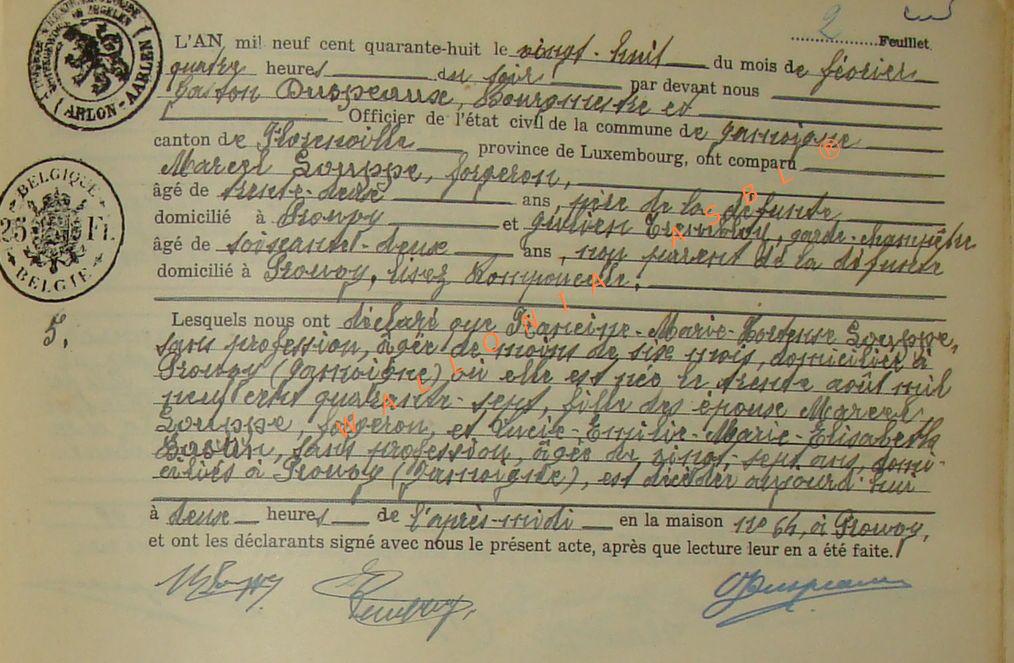 2 Feuillet
5.
L'AN, mil neuf cent quarante-huit le vingt-huit du mois de février
quatre heures du soir par devant nous
Gaston Duspeaux, Bourgmestre et
Officier de l'état civil de la commune de Jamoigne
canton de Florenville province de Luxembourg, ont comparu
Marcel Souppe, forgeron,
âgé de trente-deux ans, père de la défunte
domicilié à Prouvy et Julien garde-champêtre
âgé de soixante-deux ans, non parent de la défunte
domicilié à Prouvy, lisez Romponcelle.
Lesquels nous ont déclaré que Francine-Marie-Hortense Souppe,
sans profession, âgée de moins de six mois, domiciliée à
Prouvy (Jamoigne) où elle est née le trente août mil
neuf cent quarante-sept, fille des époux Marcel
Souppe, forgeron, et Lucie-Emilie-Marie-Elisabeth
sans profession, âgée de vingt-sept ans, domi-
ciliés à Prouvy (Jamoigne), est décédée aujourd'hui
à deux heures de l'après-midi en la maison no 64, à Prouvy,
et ont les déclarants signé avec nous le présent acte, après que lecture leur en a été faite.
ARLON-AARLEN
BELGIQUE
25 Fr.
BELGIE
WALLONIA ASBL ®